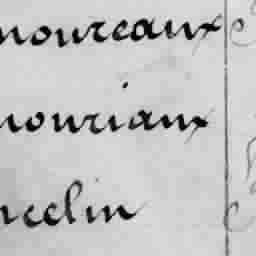 noureaux
nouriaux
ncelin